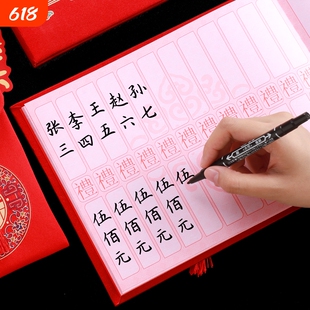 618
张三
李四
王五
赵六
孙七
禮禮禮禮禮禮禮禮禮禮
伍佰元
伍佰元
伍佰元
伍佰元
伍